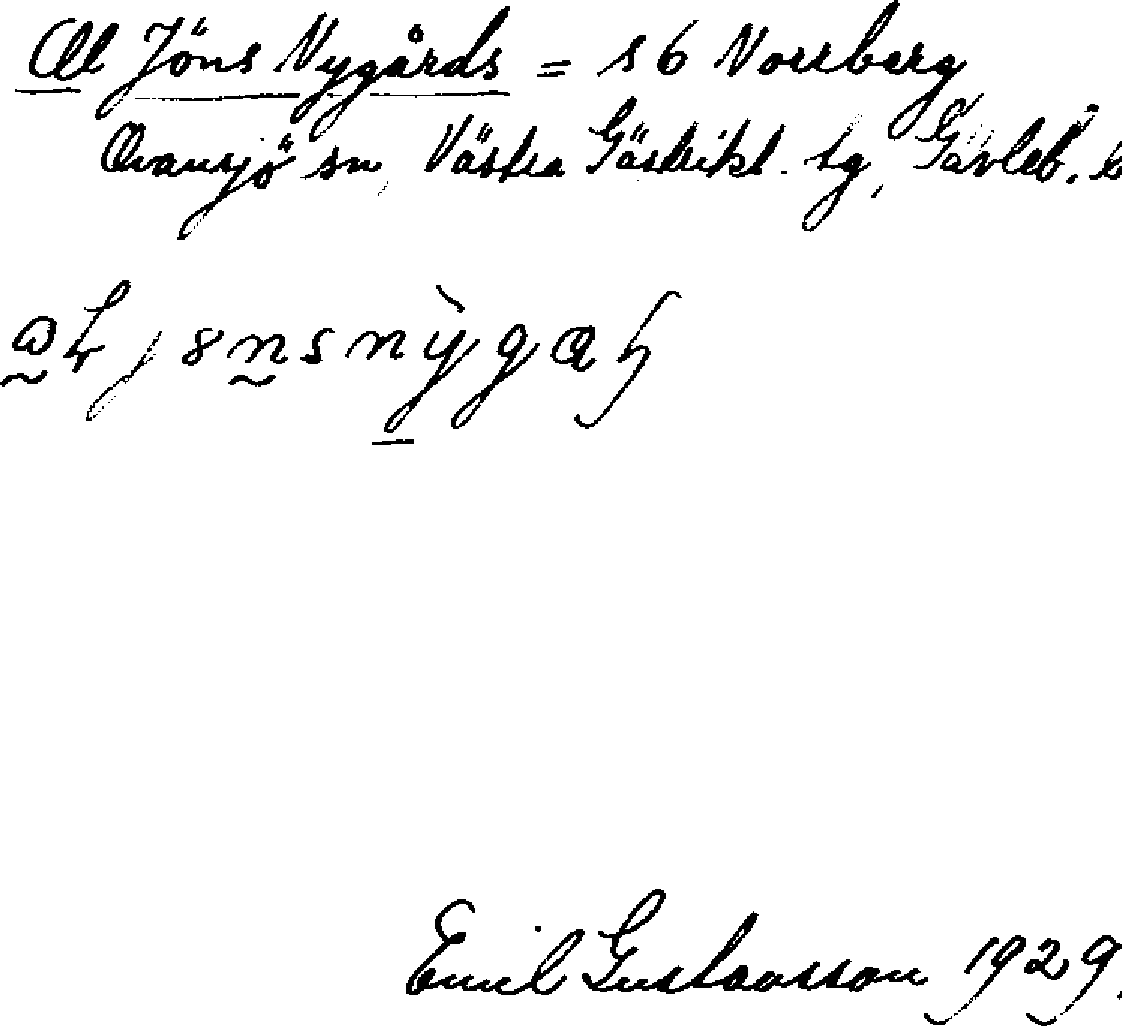 All Jöns Nygårds = s 6 Norrberg
Ovansjö sn, Västra Gästrikl. tg, Gävleb.
Emil Gustavsson 1929.